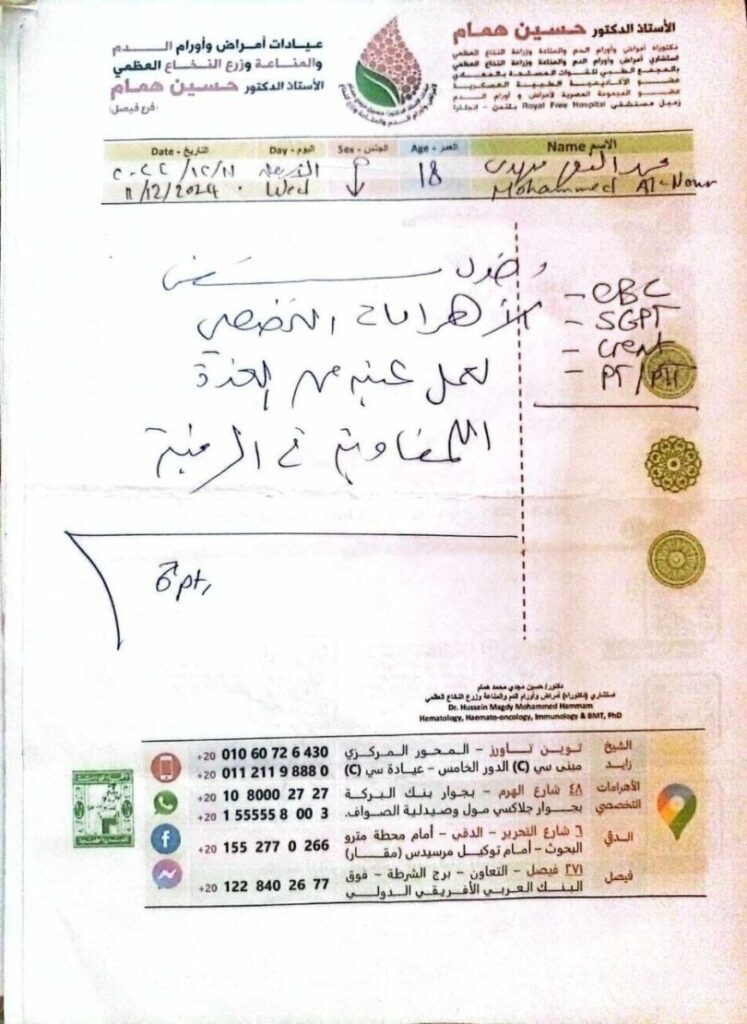 الأستاذ الدكتور حسين همام
دكتوراه أمراض وأورام الدم والمناعة وزراعة النخاع العظمي
استشاري أمراض وأورام الدم والمناعة وزراعة النخاع العظمي
بالمجمع الطبي للقوات المسلحة بالمعادي
عضو الأكاديمية الطبية العسكرية
عضو المجموعة المصرية لأمراض وأورام الدم
زميل مستشفى Royal Free Hospital بلندن - إنجلترا
عيادات أمراض وأورام الدم
والمناعة وزرع النخاع العظمي
الأستاذ الدكتور حسين همام
(فرع فيصل)
الاسم Name
العمر - Age
الجنس - Sex
اليوم - Day
التاريخ - Date
18
Mohammed Al-Nour
Wed
11/12/2024
- CBC
- SGPT
- Creat
- PT/PTT
دخول
الأهرامات التخصصي
لعمل عينة من الغدة
اللمفاوية في الرقبة
دكتور/ حسين مجدي محمد همام
استشاري (دكتوراه) أمراض وأورام الدم والمناعة وزرع النخاع العظمي
Dr. Hussein Magdy Mohammed Hammam
Hematology, Haemato-oncology, Immunology & BMT, PhD
الشيخ زايد
توين تاورز - المحور المركزي
مبنى سي (C) الدور الخامس - عيادة سي (C)
+20 010 60 72 6 430
+20 011 211 9 888 0
الأهرامات التخصصي
٤٨ شارع الهرم - بجوار بنك البركة
بجوار جلاكسي مول وصيدلية الصواف.
+20 10 8000 27 27
+20 1 55555 8 00 3
الدقي
٦ شارع التحرير - الدقي - أمام محطة مترو
البحوث - أمام توكيل مرسيدس (مقار)
+20 155 277 0 266
فيصل
٢٧١ فيصل - التعاون - برج الشرطة - فوق
البنك العربي الأفريقي الدولي
+20 122 840 26 77